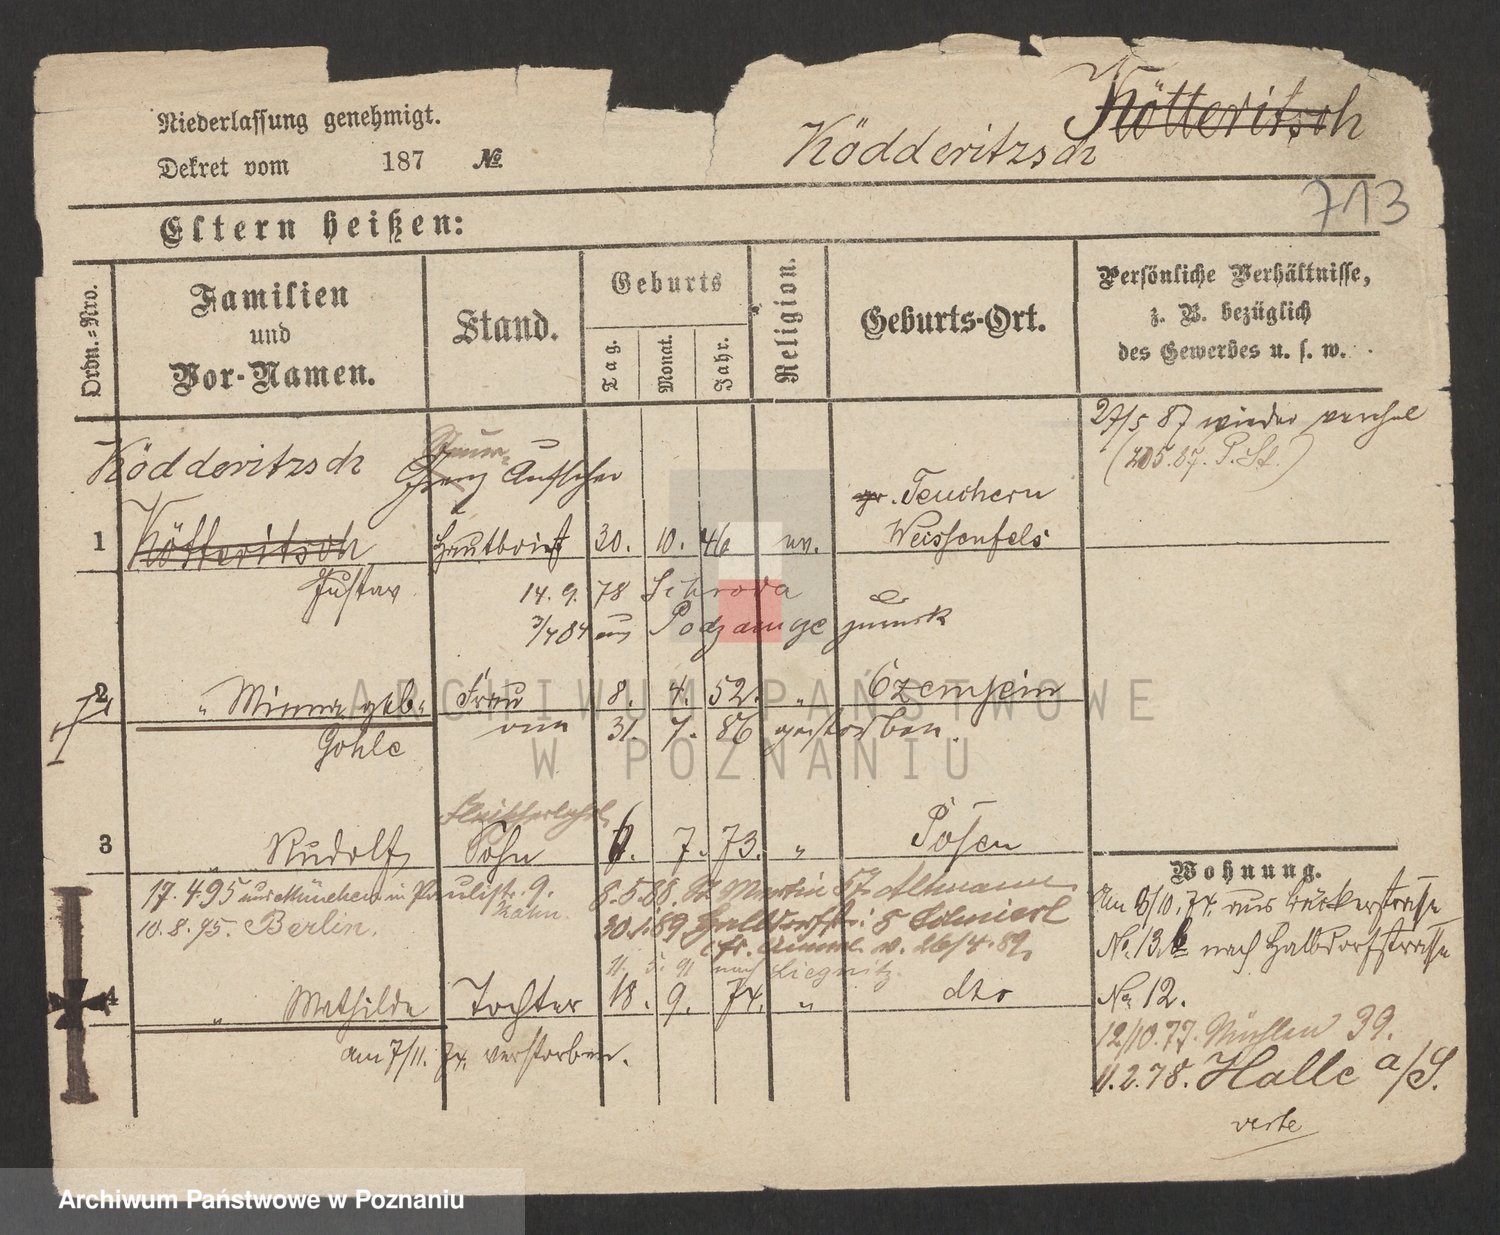 Niederlassung genehmigt.
Dekret vom 187 No
Kötteritsch
Ködderitzsch
713
Eltern heißen:
Ordn.-Nro.
Familien
und
Vor-Namen.
Stand.
Geburts
Tag.
Monat.
Jahr.
Religion.
Geburts-Ort.
Persönliche Verhältnisse,
z. B. bezüglich
des Gewerbes u. s. w.
27/5 87 wieder
Ködderitzsch
Grenz Aufseher
gr. Teuchern
1 Kötteritsch
Hautboist 30. 10. 46 ev. Weissenfels
Gustav
14. 9. 78 Schroda
3/4 84 aus Podzamcze zurück
2 " Minna geb. Frau 8. 4. 52. " Czempin
Gohle
am 31. 7. 86 gestorben.
3 " Rudolf Sohn 6. 7. 73. " Posen
17. 4. 95 aus München in Paulist. 9.
10. 8. 95. Berlin.
8. 5. 88. St Martin 57
30. 1. 89 Halbdorfstr: 5
v. 26/4. 89
11. 5. 91 nach Liegnitz.
4 " Mathilde Tochter 18. 9. 74. " dto
am 7/11. 74. verstorben.
Wohnung.
Am 8/10. 74. aus Bäckerstrasse
No. 13b nach Halbdorfstrasse
No 12.
12/10. 77. Mühlen 39.
11. 2. 78. Halle a/S.
verte
ARCHIWUM PAŃSTWOWE
W POZNANIU
Archiwum Państwowe w Poznaniu